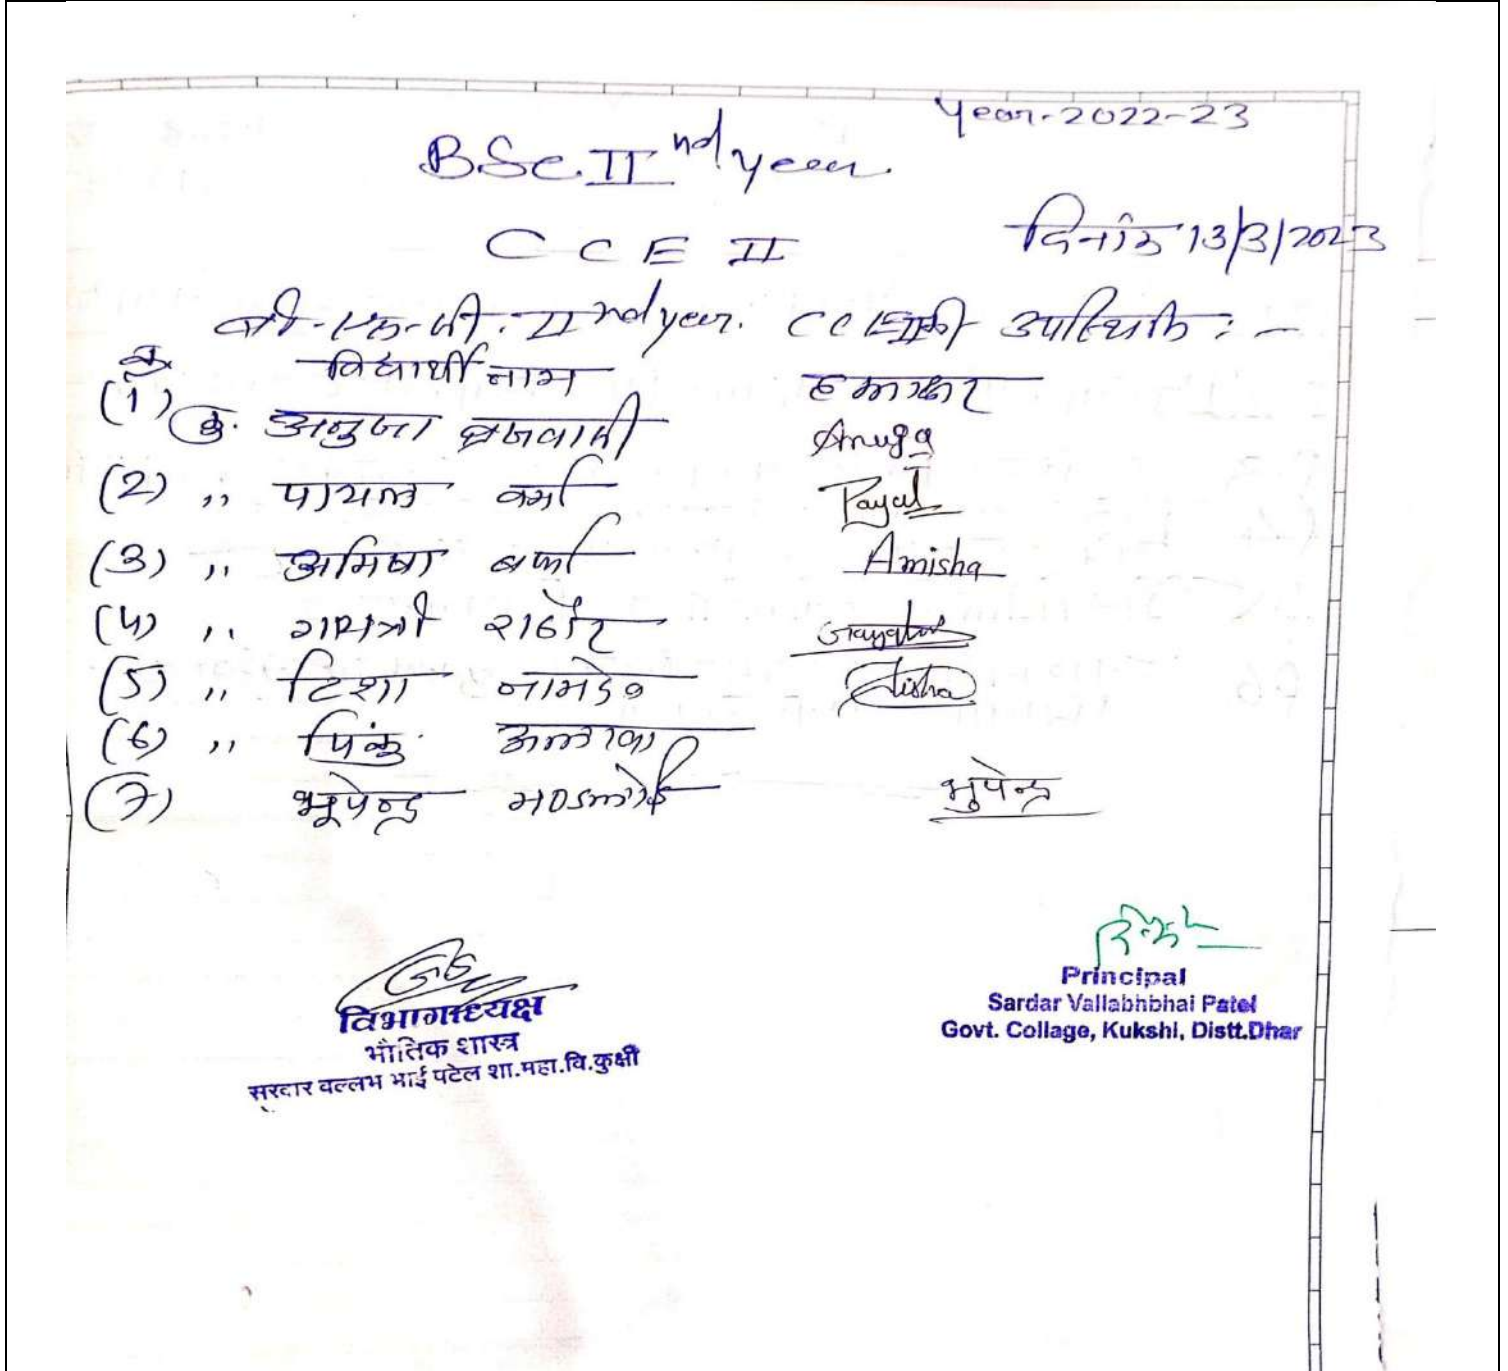 Year-2022-23
BSc. II nd year
CCE II
दिनांक 13/3/2023
बी-एस-सी. II nd year. CCE II की उपस्थिति : -
क्र. विद्यार्थी नाम हस्ताक्षर
(1) कु. अनुजा ब्रजवासी Anuja
(2) ,, पायल वर्मा Payal
(3) ,, अमिषा वर्मा Amisha
(4) ,, गायत्री राठौर Gayatri
(5) ,, टिशा नामदेव Tisha
(6) ,, पिंकु अलावा
(7) भूपेन्द्र मण्डलोई भुपेन्द्र
विभागाध्यक्ष
भौतिक शास्त्र
सरदार वल्लभ भाई पटेल शा.महा.वि.कुक्षी
Principal
Sardar Vallabhbhai Patel
Govt. Collage, Kukshi, Distt.Dhar